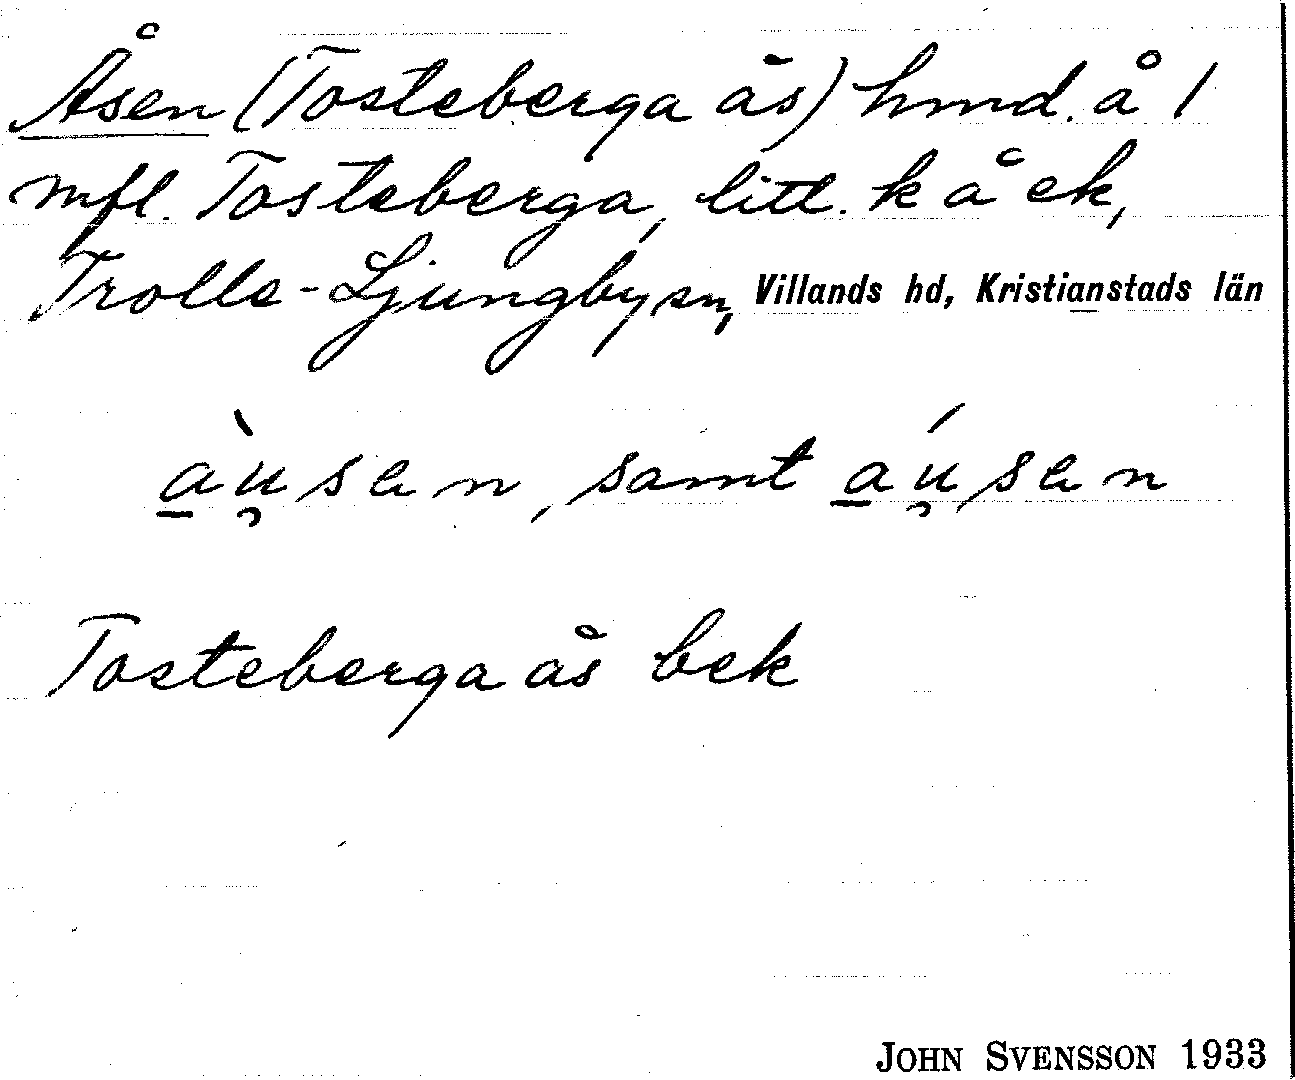 Åsen (Tosteberga ås) hmd. å 1
mfl. Tosteberga, litt. k å ek,
Trolle-Ljungby sn, Villands hd, Kristianstads län
a̠ù̯sen, samt a̠ú̯sen
Tosteberga ås bek
JOHN SVENSSON 1933